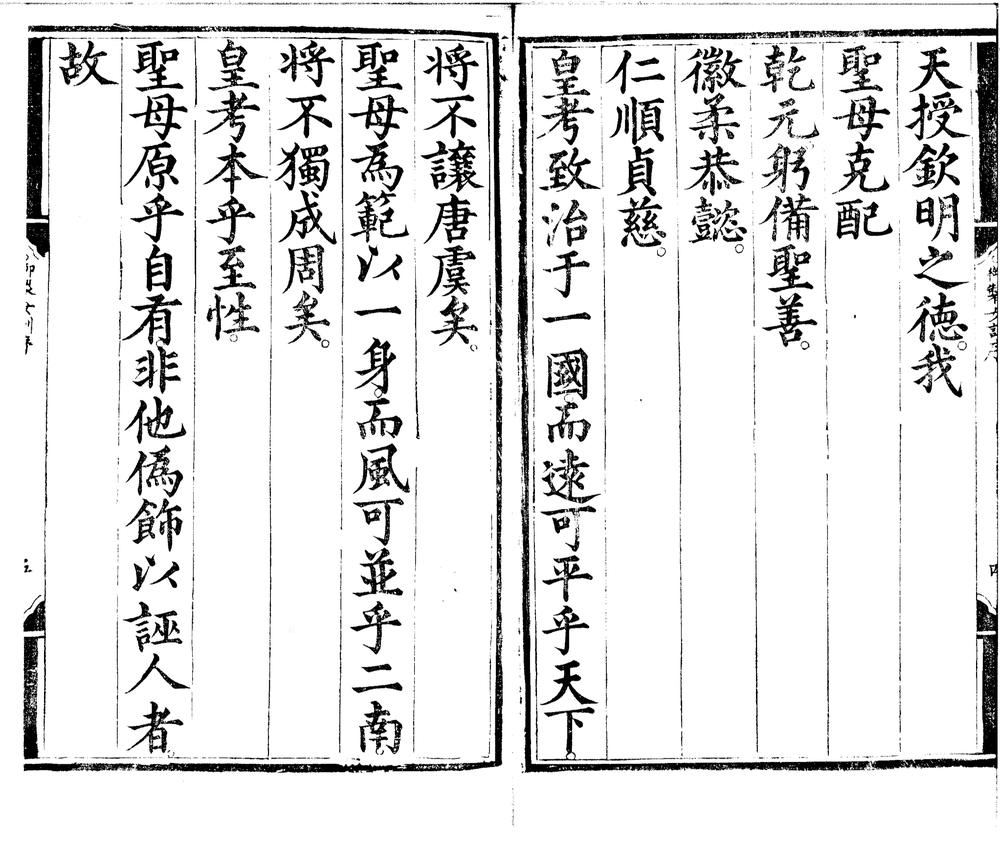 天授欽明之德。我
聖母克配
乾元躬備聖善。
徽柔恭懿。
仁順貞慈。
皇考致治于一國。而遠可平乎天下。
將不讓唐虞矣。
聖母為範以一身。而風可並乎二南。
將不獨成周矣。
皇考本乎至性。
聖母原乎自有。非他偽飾以誣人者。
故